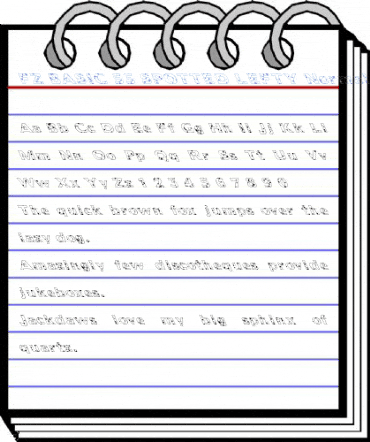 FZ BASIC 55 SPOTTED LEFTY Normal
Aa Bb Cc Dd Ee Ff Gg Hh Ii Jj Kk Ll
Mm Nn Oo Pp Qq Rr Ss Tt Uu Vv
Ww Xx Yy Zz 1 2 3 4 5 6 7 8 9 0
The quick brown fox jumps over the
lazy dog.
Amazingly few discotheques provide
jukeboxes.
Jackdaws love my big sphinx of
quartz.